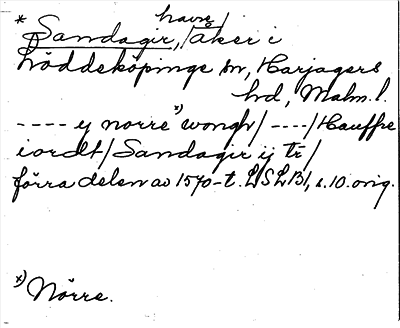 havre/
* Sandagir, /åker i
Löddeköpinge sn, Harjagers
hd, Malm. l.
---- ij norre *) wongh/ ----/ Hauffre
iordt/ Sandagir ij tr/
förra delen av 1570-t. LSLB1, s. 10. orig.
*) Nörre.